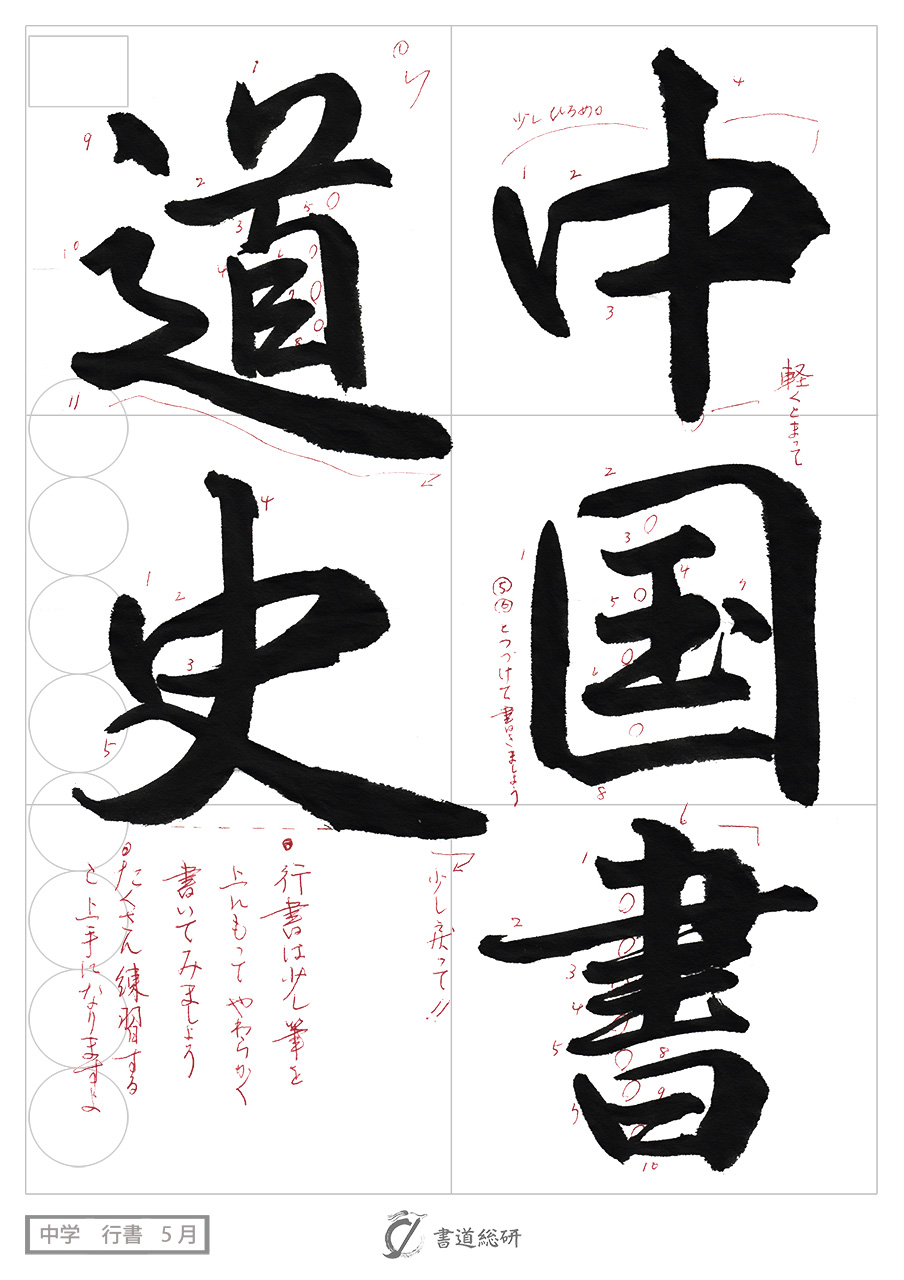 中国書
道史
少しひろめ。
軽くとまって
⑤⑥とつづけて書きましょう
少し戻って!!
行書は少し筆を
上にもってやわらかく
書いてみましょう
たくさん練習する
と上手になりますよ
中学 行書 5月
書道総研